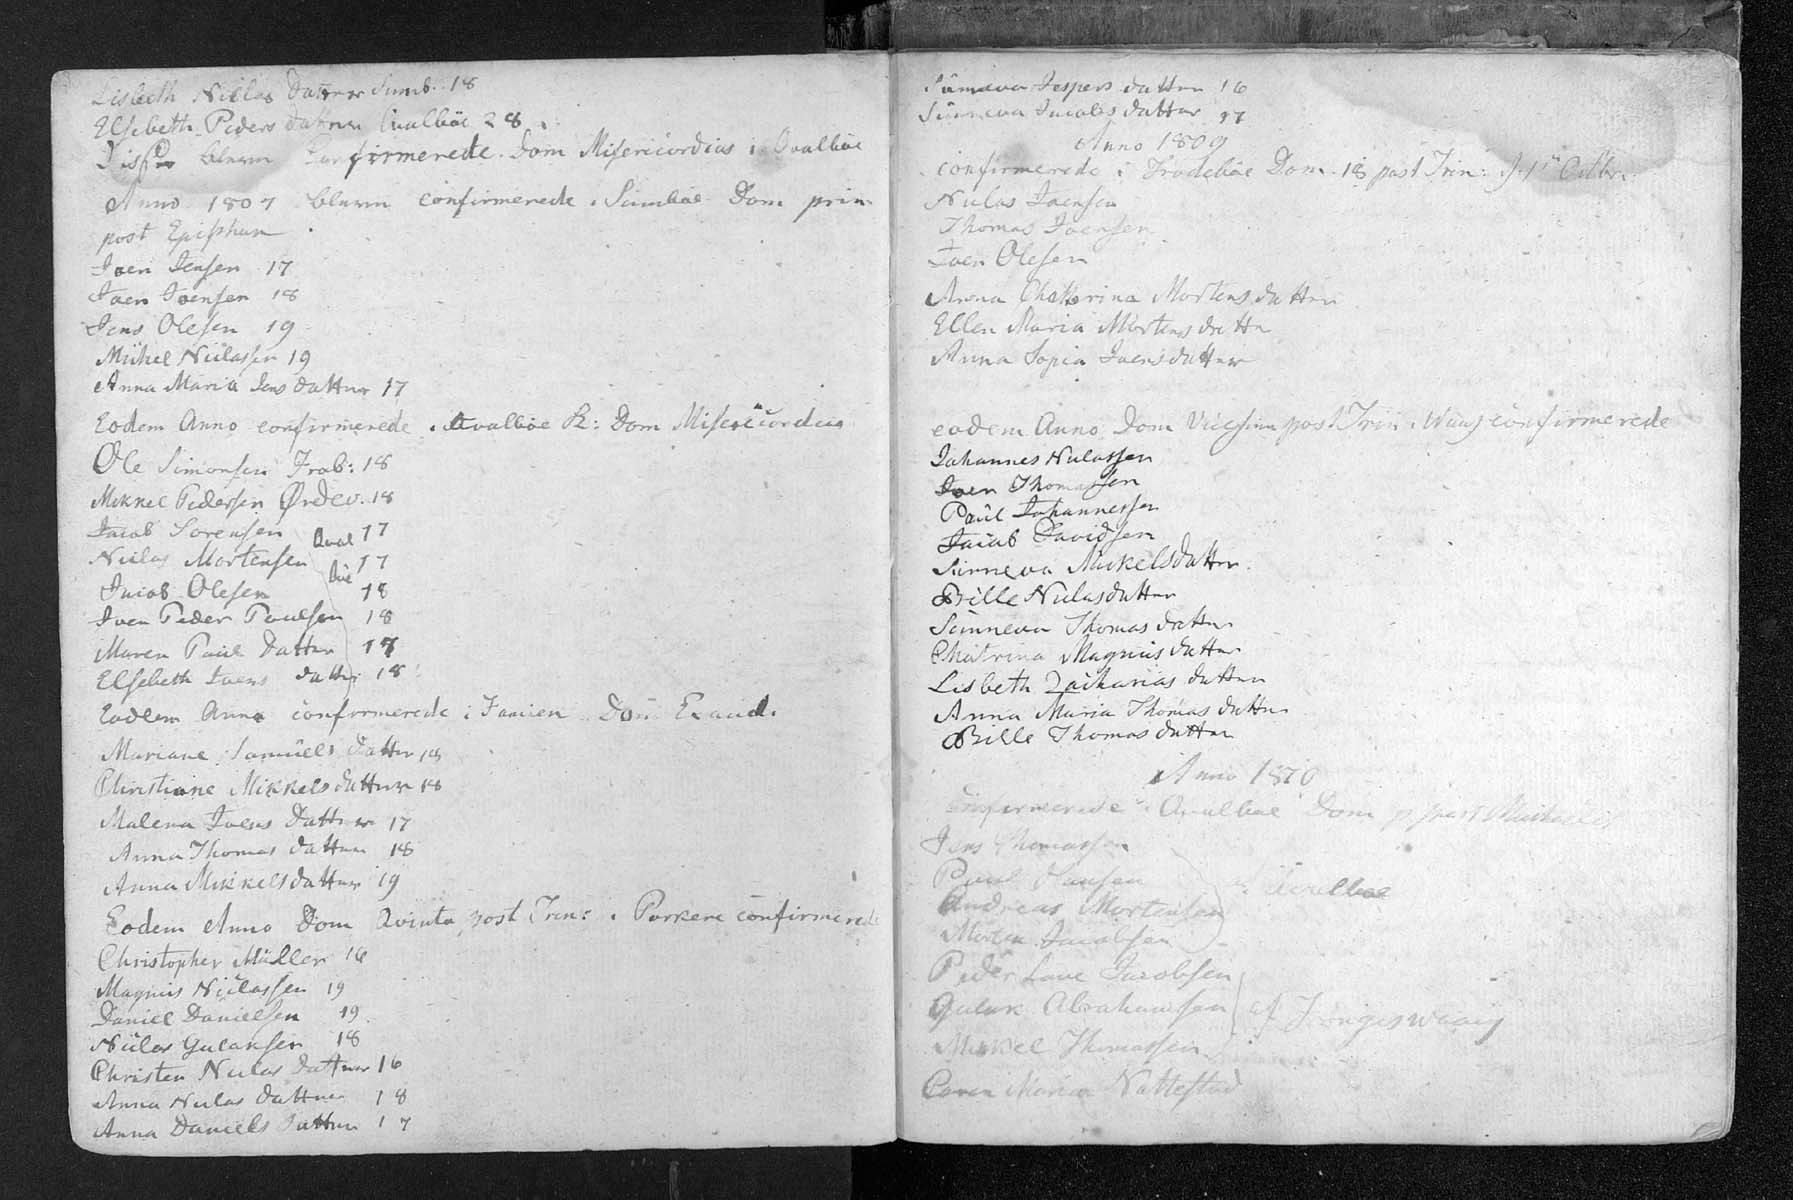 Lisbeth Niclas Datter Sumb. 18
Elsebeth Peders datter Qvalböe 28
Disse blewen Confirmerede Dom Misericordias i Qvalböe
Anno 1807 blewen confirmerede i Sumböe Dom prim
post Epiphan
Joen Jensen 17
Joen Joensen 18
Jens Olesen 19
Mikkel Niclasen 19
Anna Maria Jens datter 17
Eodem Anno confirmerede i Qvalböe K: Dom Misericordias
Ole Simonsen Frob: 18
Mikkel Pedersen Ördev. 18
Jacob Sorensen 17
Qval
Niclas Mortensen 17
Böe
Jacob Olesen 18
Joen Peder Poulsen 18
Maren Paul Datter 17
Elsebeth Joens datter 18
Eodem Anno confirmerede i Famien Dom Exaudi
Mariane Samuels Datter 18
Christiane Mikkels datter 18
Malena Joens Datter 17
Anna Thomas datter 18
Anna Mikkelsdatter 19
Eodem Anno Dom Qvinta post Trin: i Porkere confirmerede
Christopher Müller 16
Magnus Niclassen 19
Daniel Danielsen 19
Niclas Gulaksen 18
Christen Niclas Datter 16
Anna Niclas datter 18
Anna Daniels datter 17
Sünneva Jespers datter 16
Sünneva Jacobs datter 17
Anno 1809
confirmerede i Frodeböe Dom. 18 post Trin:
Niclas Joensen
Thomas Joensen
Joen Olesen
Anna Chatrina Mortens datter
Ellen Maria Mortens datter
Anna Sopia Joens datter
eodem Anno Dom Vicesima post Trin i Waag confirmerede
Johannes Niclassen
Joen Thomassen
Paul Johannessen
Jacob Davidsen
Sinneva Mickelsdatter
Bille Niclasdatter
Sünneva Thomas datter
Chatrina Magnus datter
Lisbeth Zacharias datter
Anna Maria Thomas datter
Bille Thomas datter
Anno 1810
Confirmerede i Qvalböe Dom p. post Michaelis
Jens Thomassen
Paul Hansen
af Qvalböe
Andreas Mortensen
Morten Jacobsen
Peder Lave Jacobsen
Gulak Abrahamsen
af Trngiswaag
Mikkel Thomassen
Caren Maria Nattestad